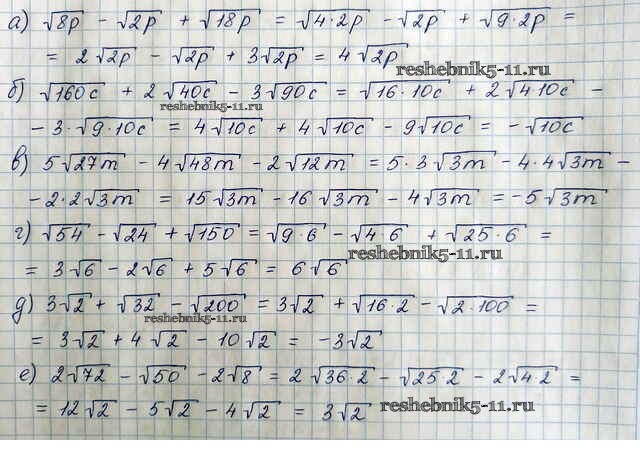 а) √8p - √2p + √18p = √4·2p - √2p + √9·2p =
= 2√2p - √2p + 3√2p = 4√2p
reshebnik5-11.ru
б) √160c + 2√40c - 3√90c = √16·10c + 2√4·10c -
reshebnik5-11.ru
- 3·√9·10c = 4√10c + 4√10c - 9√10c = -√10c
в) 5√27m - 4√48m - 2√12m = 5·3√3m - 4·4√3m -
- 2·2√3m = 15√3m - 16√3m - 4√3m = -5√3m
г) √54 - √24 + √150 = √9·6 - √4 6 + √25·6 =
reshebnik5-11.ru
= 3√6 - 2√6 + 5√6 = 6√6
д) 3√2 + √32 - √200 = 3√2 + √16·2 - √2·100 =
reshebnik5-11.ru
= 3√2 + 4√2 - 10√2 = -3√2
е) 2√72 - √50 - 2√8 = 2√36·2 - √25 2 - 2√4·2 =
= 12√2 - 5√2 - 4√2 = 3√2
reshebnik5-11.ru